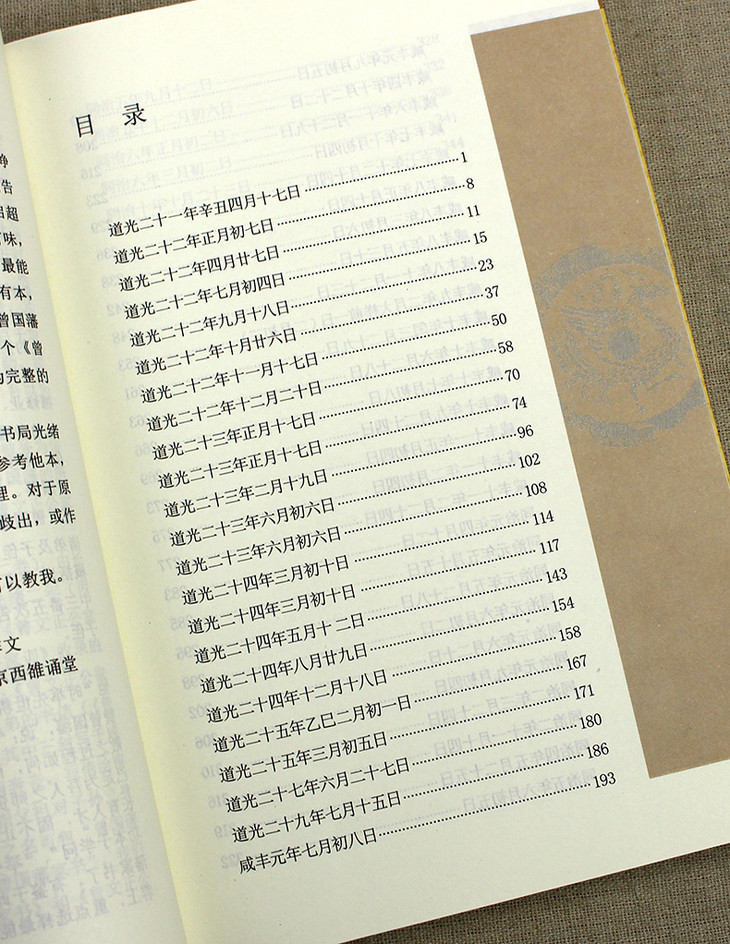 告
超
味，
最能
有本，
曾国藩
个《曾
完整的
书局光绪
参考他本，
理。对于原
歧出，或作
以教我。
文
京西雒诵堂
目 录
道光二十一年辛丑四月十七日 1
道光二十二年正月初七日 8
道光二十二年四月廿七日 11
道光二十二年七月初四日 15
道光二十二年九月十八日 23
道光二十二年十月廿六日 37
道光二十二年十一月十七日 50
道光二十二年十二月二十日 58
道光二十三年正月十七日 70
道光二十三年正月十七日 74
道光二十三年二月十九日 96
道光二十三年六月初六日 102
道光二十三年六月初六日 108
道光二十四年三月初十日 114
道光二十四年三月初十日 117
道光二十四年五月十二日 143
道光二十四年八月廿九日 154
道光二十四年十二月十八日 158
道光二十五年乙巳二月初一日 167
道光二十五年三月初五日 171
道光二十七年六月二十七日 180
道光二十九年七月十五日 186
咸丰元年七月初八日 193